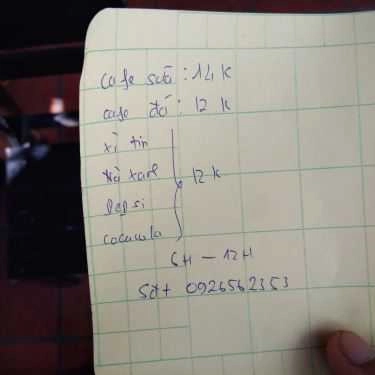 cafe sữa : 14 K
cafe đá : 12 K
xì tin
trà xanh
12 K
pepsi
cocacola
6H - 12H
Sđt 0926562353